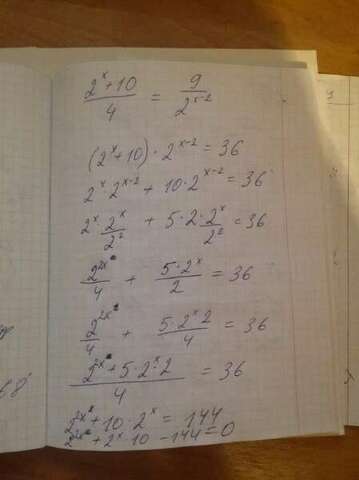 (2^x + 10)/4 = 9/2^(x-2)
(2^x + 10) · 2^(x-2) = 36
2^x · 2^(x-2) + 10 · 2^(x-2) = 36
2^x · 2^x/2^2 + 5 · 2 · 2^x/2^2 = 36
2^(2x)/4 + 5 · 2^x/2 = 36
2^(2x)/4 + 5 · 2^x · 2/4 = 36
(2^(2x) + 5 · 2^x · 2)/4 = 36
2^(2x) + 10 · 2^x = 144
2^(2x) + 2^x · 10 - 144 = 0